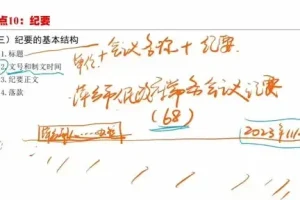 点10：纪要
三）纪要的基本结构
1.标题
单位+会议名称+纪要
2.文号和制文时间
3.纪要正文
萍乡市人民政府常务会议纪要
4.落款
（68）
2023年11